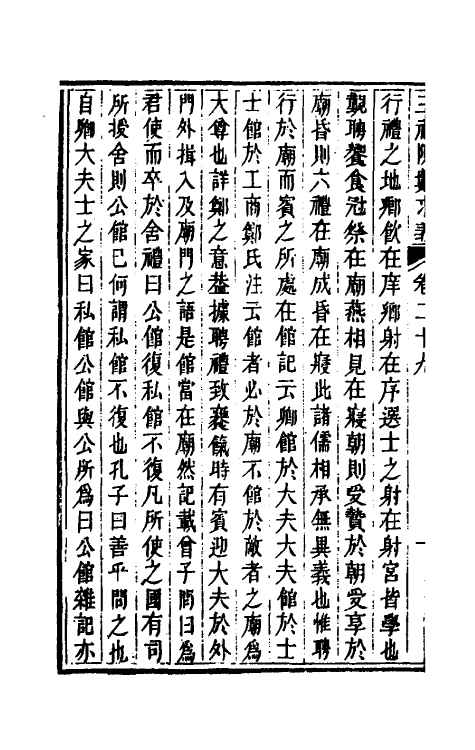 三禮陳數求義 卷二十九
行禮之地鄉飲在庠鄉射在序選士之射在射宮皆學也
覲聘饗食冠祭在廟燕相見在寢朝則受贄於朝受享於
廟昏則六禮在廟成昏在寢此諸儒相承無異義也惟聘
行於廟而賓之所處在館記云卿館於大夫大夫館於士
士館於工商鄭氏注云館者必於廟不館於敵者之廟為
大尊也詳鄭之意蓋據聘禮致饔餼時有賓迎大夫於外
門外揖入及廟門之語是館當在廟然記載曾子問曰為
君使而卒於舍禮曰公館復私館不復凡所使之國有司
所授舍則公館已何謂私館不復也孔子曰善乎問之也
自卿大夫士之家曰私館公館與公所為曰公館雜記亦